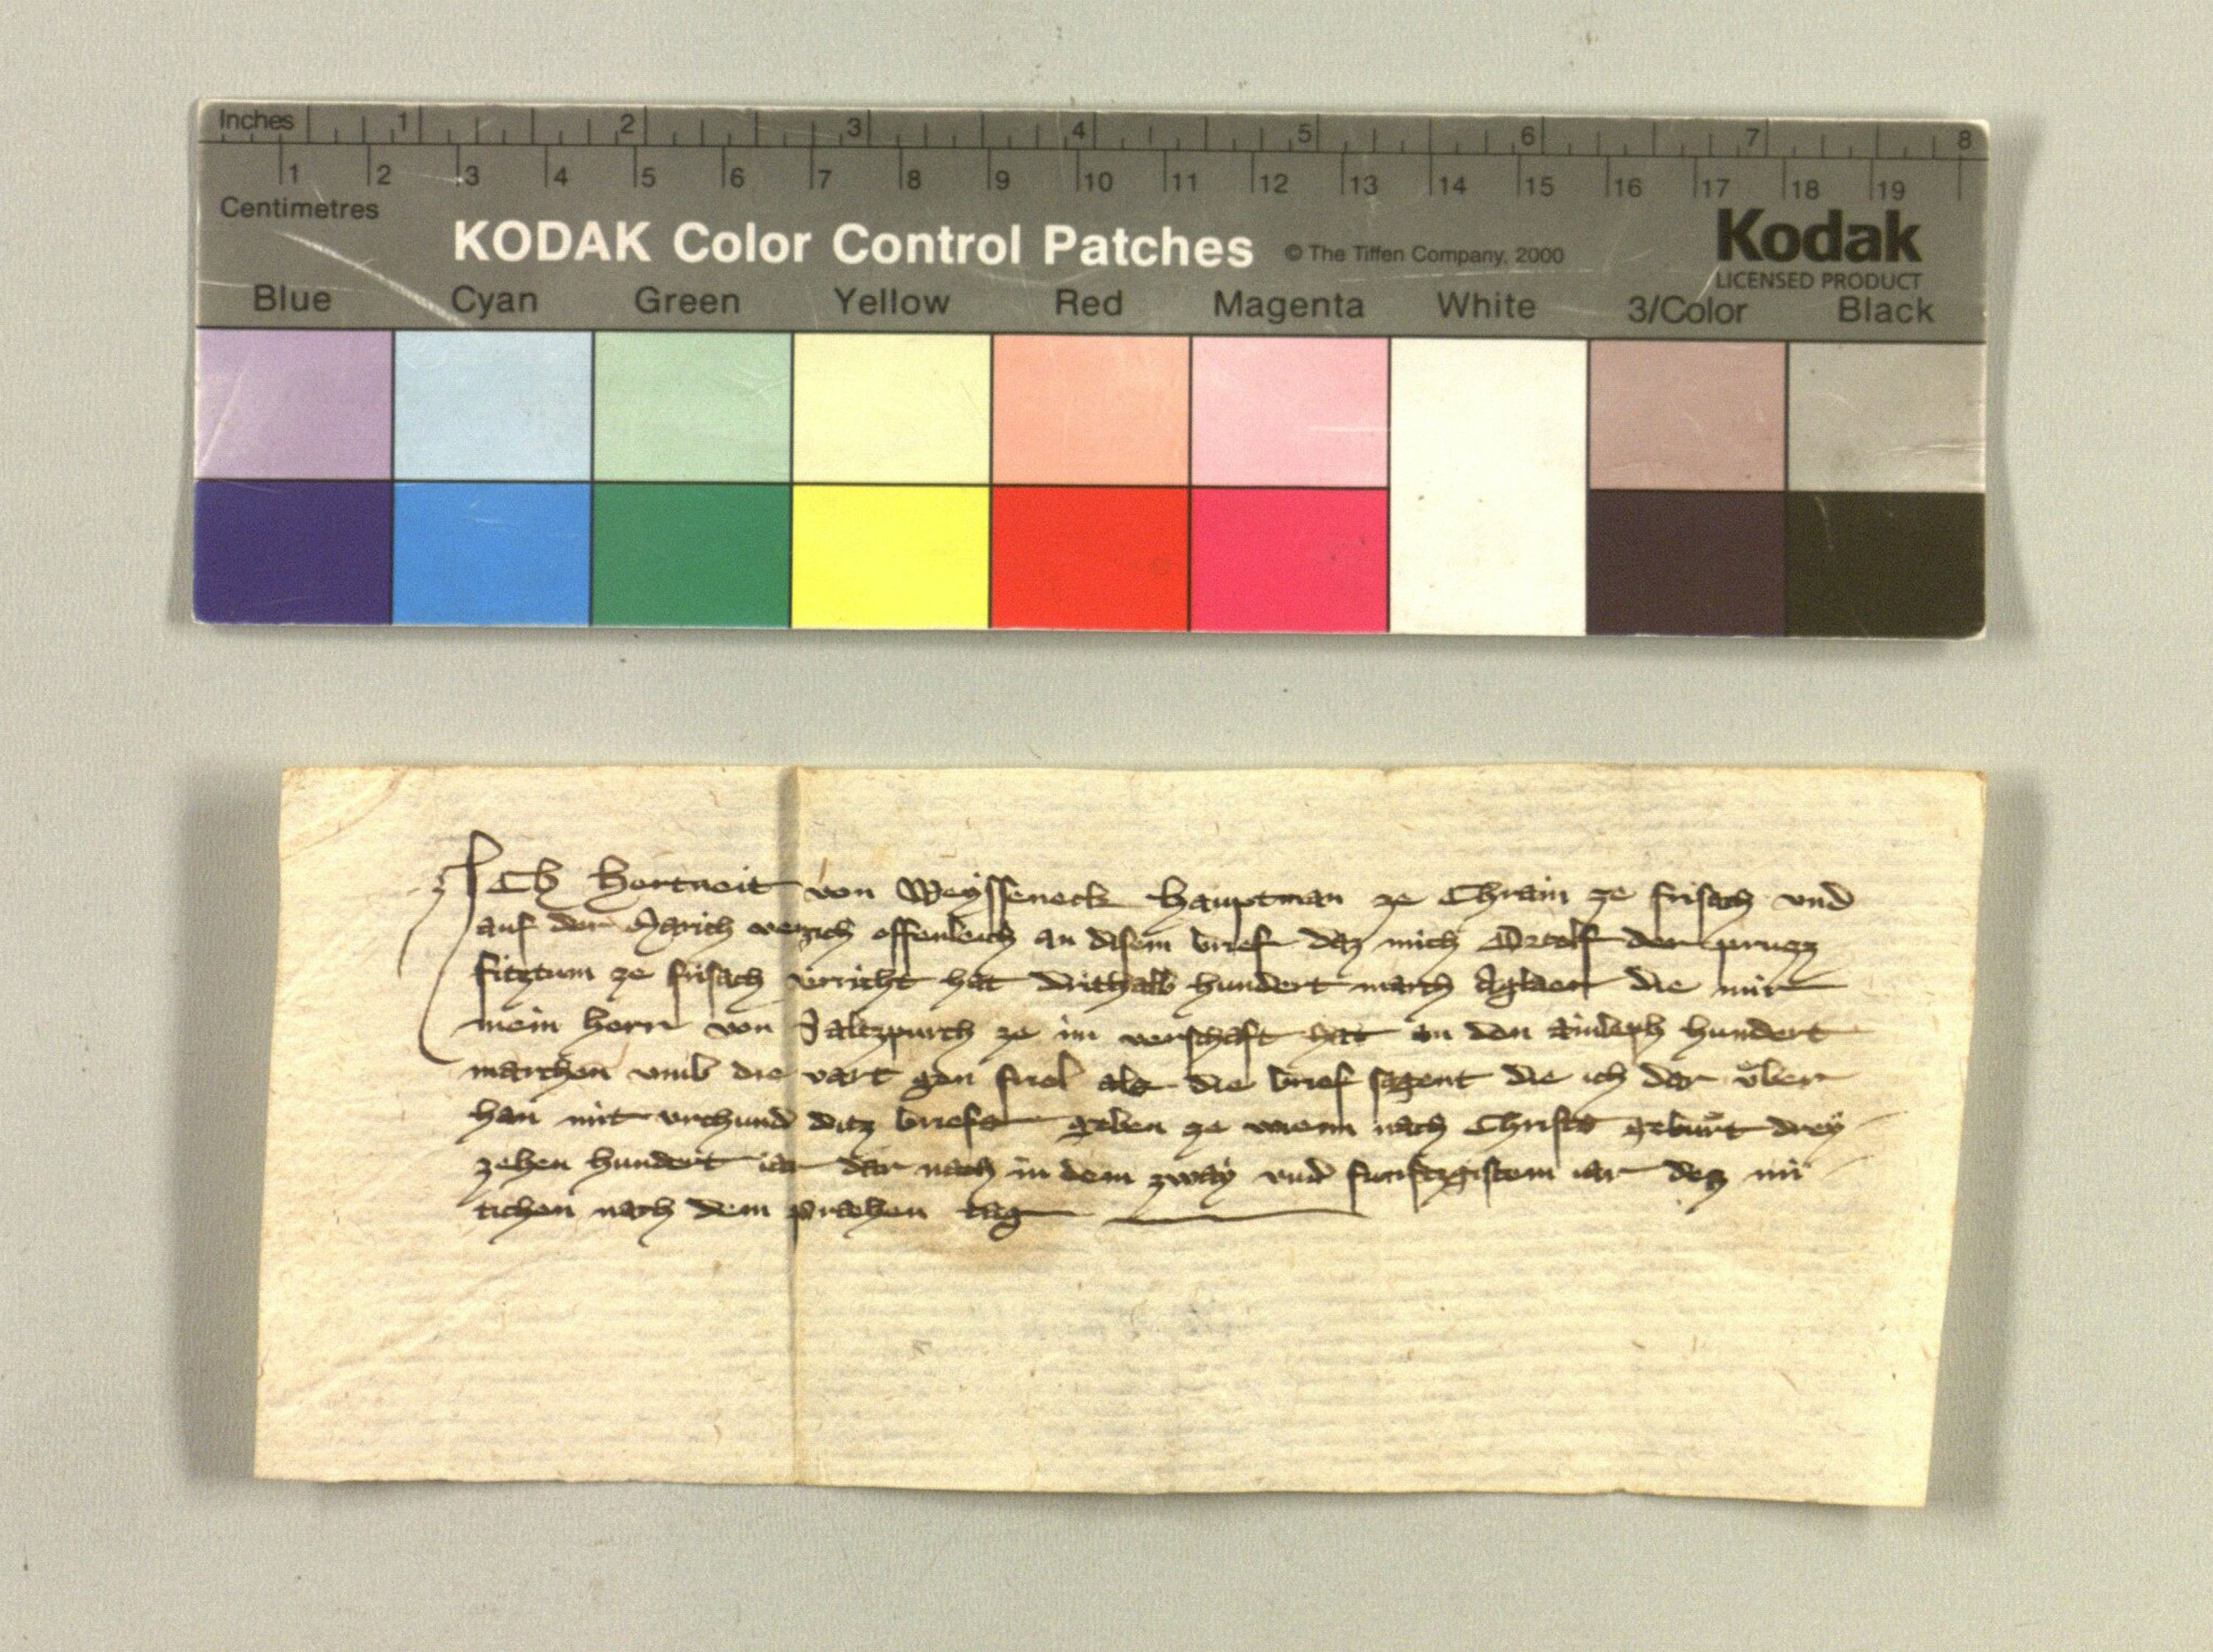 Inches 1 2 3 4 5 6 7 8
1 2 3 4 5 6 7 8 9 10 11 12 13 14 15 16 17 18 19
Centimetres
KODAK Color Control Patches © The Tiffen Company, 2000 Kodak
LICENSED PRODUCT
Blue Cyan Green Yellow Red Magenta White 3/Color Black
ICh Hertneit von Weysseneck Hauptman ze Chrain ze frisach vnd
auf der March vergich offenleich an disem brief daz mich Ortolf der prugg
fitztum ze frisach verricht hat drithalb hundert march Aglaer die mir
mein herr von Saltzpurch ze im verschaft hat an den aindleph hundert
marchen vmb die vart gen friol als die brief sagent die ich dar über
han mit vrchund ditz briefs geben ze wienn nach Christs geburt drey
zehen hundert iar dar nach in dem zway vnd funftzgistem iar dez mi
tichen nach dem prehen tag